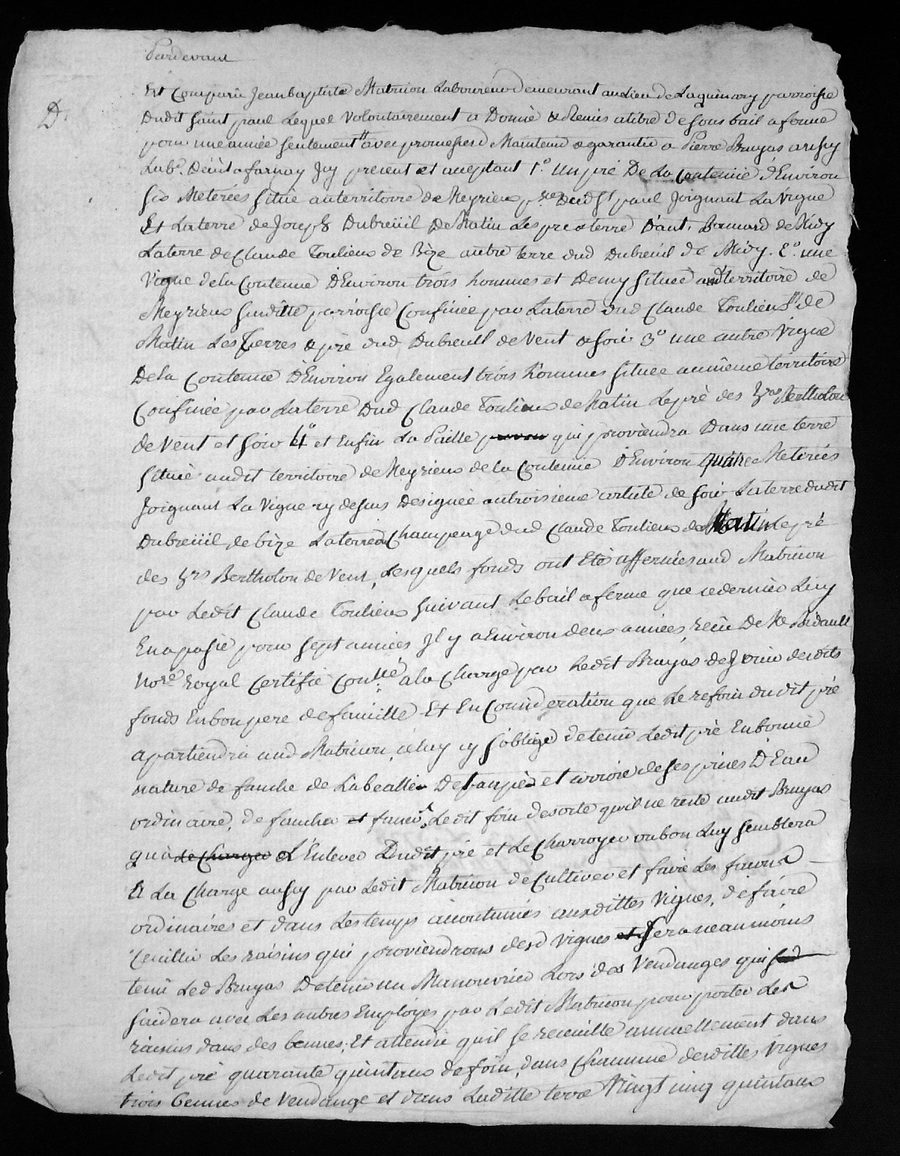 Pardevant
D.
Est Comparu Jean baptiste Matricon Laboureur demeurant au Lieu de parroisse
Dudit Saint paul Lequel Volontairement a Donné & Remis a titre de sous bail a ferme
pour une année seulement avec promesse de Maintenir & garantir a Pierre Bruyas aussy
Lab.r présent et aceptant 1.o Un pré De La Contenue d'Environ
Six Meterées situé au territoire de Meyrieux dud St paul Joignant La Vigne
Et La terre de Joseph Dubreüil De Matin Les pre & terre D'ant. de Midy
La terre de Claude Toulieux de Bize autre terre dud Dubreüil de Midy. 2.o une
Vigne de la Contenue D'Environ trois hommes et Demy située audt territoire de
Meyrieux susditte parroisse Confinée par La terre dud Claude Toulieux de
Matin Les Terres & pré dud Dubreüil de Vent & soir 3.o une autre Vigne
De la Contenue D'Environ Egalement trois hommes située au même territoire
Confinée par La terre Dud Claude Toulieux de Matin Le pré des Bertholon
de Vent et soir 4.o et Enfin La Paille qui proviendra Dans une terre
située audit territoire de Meyrieux de la Contenue D'Environ quatre Meterées
Joignant La Vigne cy dessus Designée au troisieme article de soir La terre dudit
Dubreüil de bize La terre & Champeage dud Claude Toulieux de Matin Le pré
des Bertholon de Vent, Lesquels fonds ont Etés affermés aud Matricon
par Ledit Claude Toulieux suivant Le bail a ferme que ce dernier Luy
En a passé pour sept années Il y a Environ deux années, reçu De Me
No.re Royal Certifié Con.lé a la Charge par Ledit Bruyas de Jouir desdits
fonds En bon pere de famille Et En Consideration que Le refoin dudit pré
apartiendra aud Matricon, celuy cy s'oblige de tenir Ledit pré En bonne
nature de fauche de et arrosé de ses prises D'Eau
ordinaire, de faucher et faner Ledit foin de sorte qu'il ne reste audit Bruyas
qu'a de Charger et L'Enlever Dudit pré et Le Charroyer ou bon Luy semblera
A La Charge aussy par Ledit Matricon de Cultiver et faire Les façons
ordinaires et dans Les temps acoutumés auxdittes Vignes, de faire
Ceuillir Les raisins qui proviendrons desd Vignes et sera neanmoins
tenu Led Bruyas De tenir un Manoeuvre Lors des Vendanges qui
s'aidera avec Les autres Employés par Ledit Matricon pour porter Les
raisins dans des bennes, Et attendu qu'il se receuille annuellement dans
Ledit pré quarante quintaux de foin, dans Chacune desdittes Vignes
trois bennes de Vendange et dans Laditte terre Vingt cinq quintaux